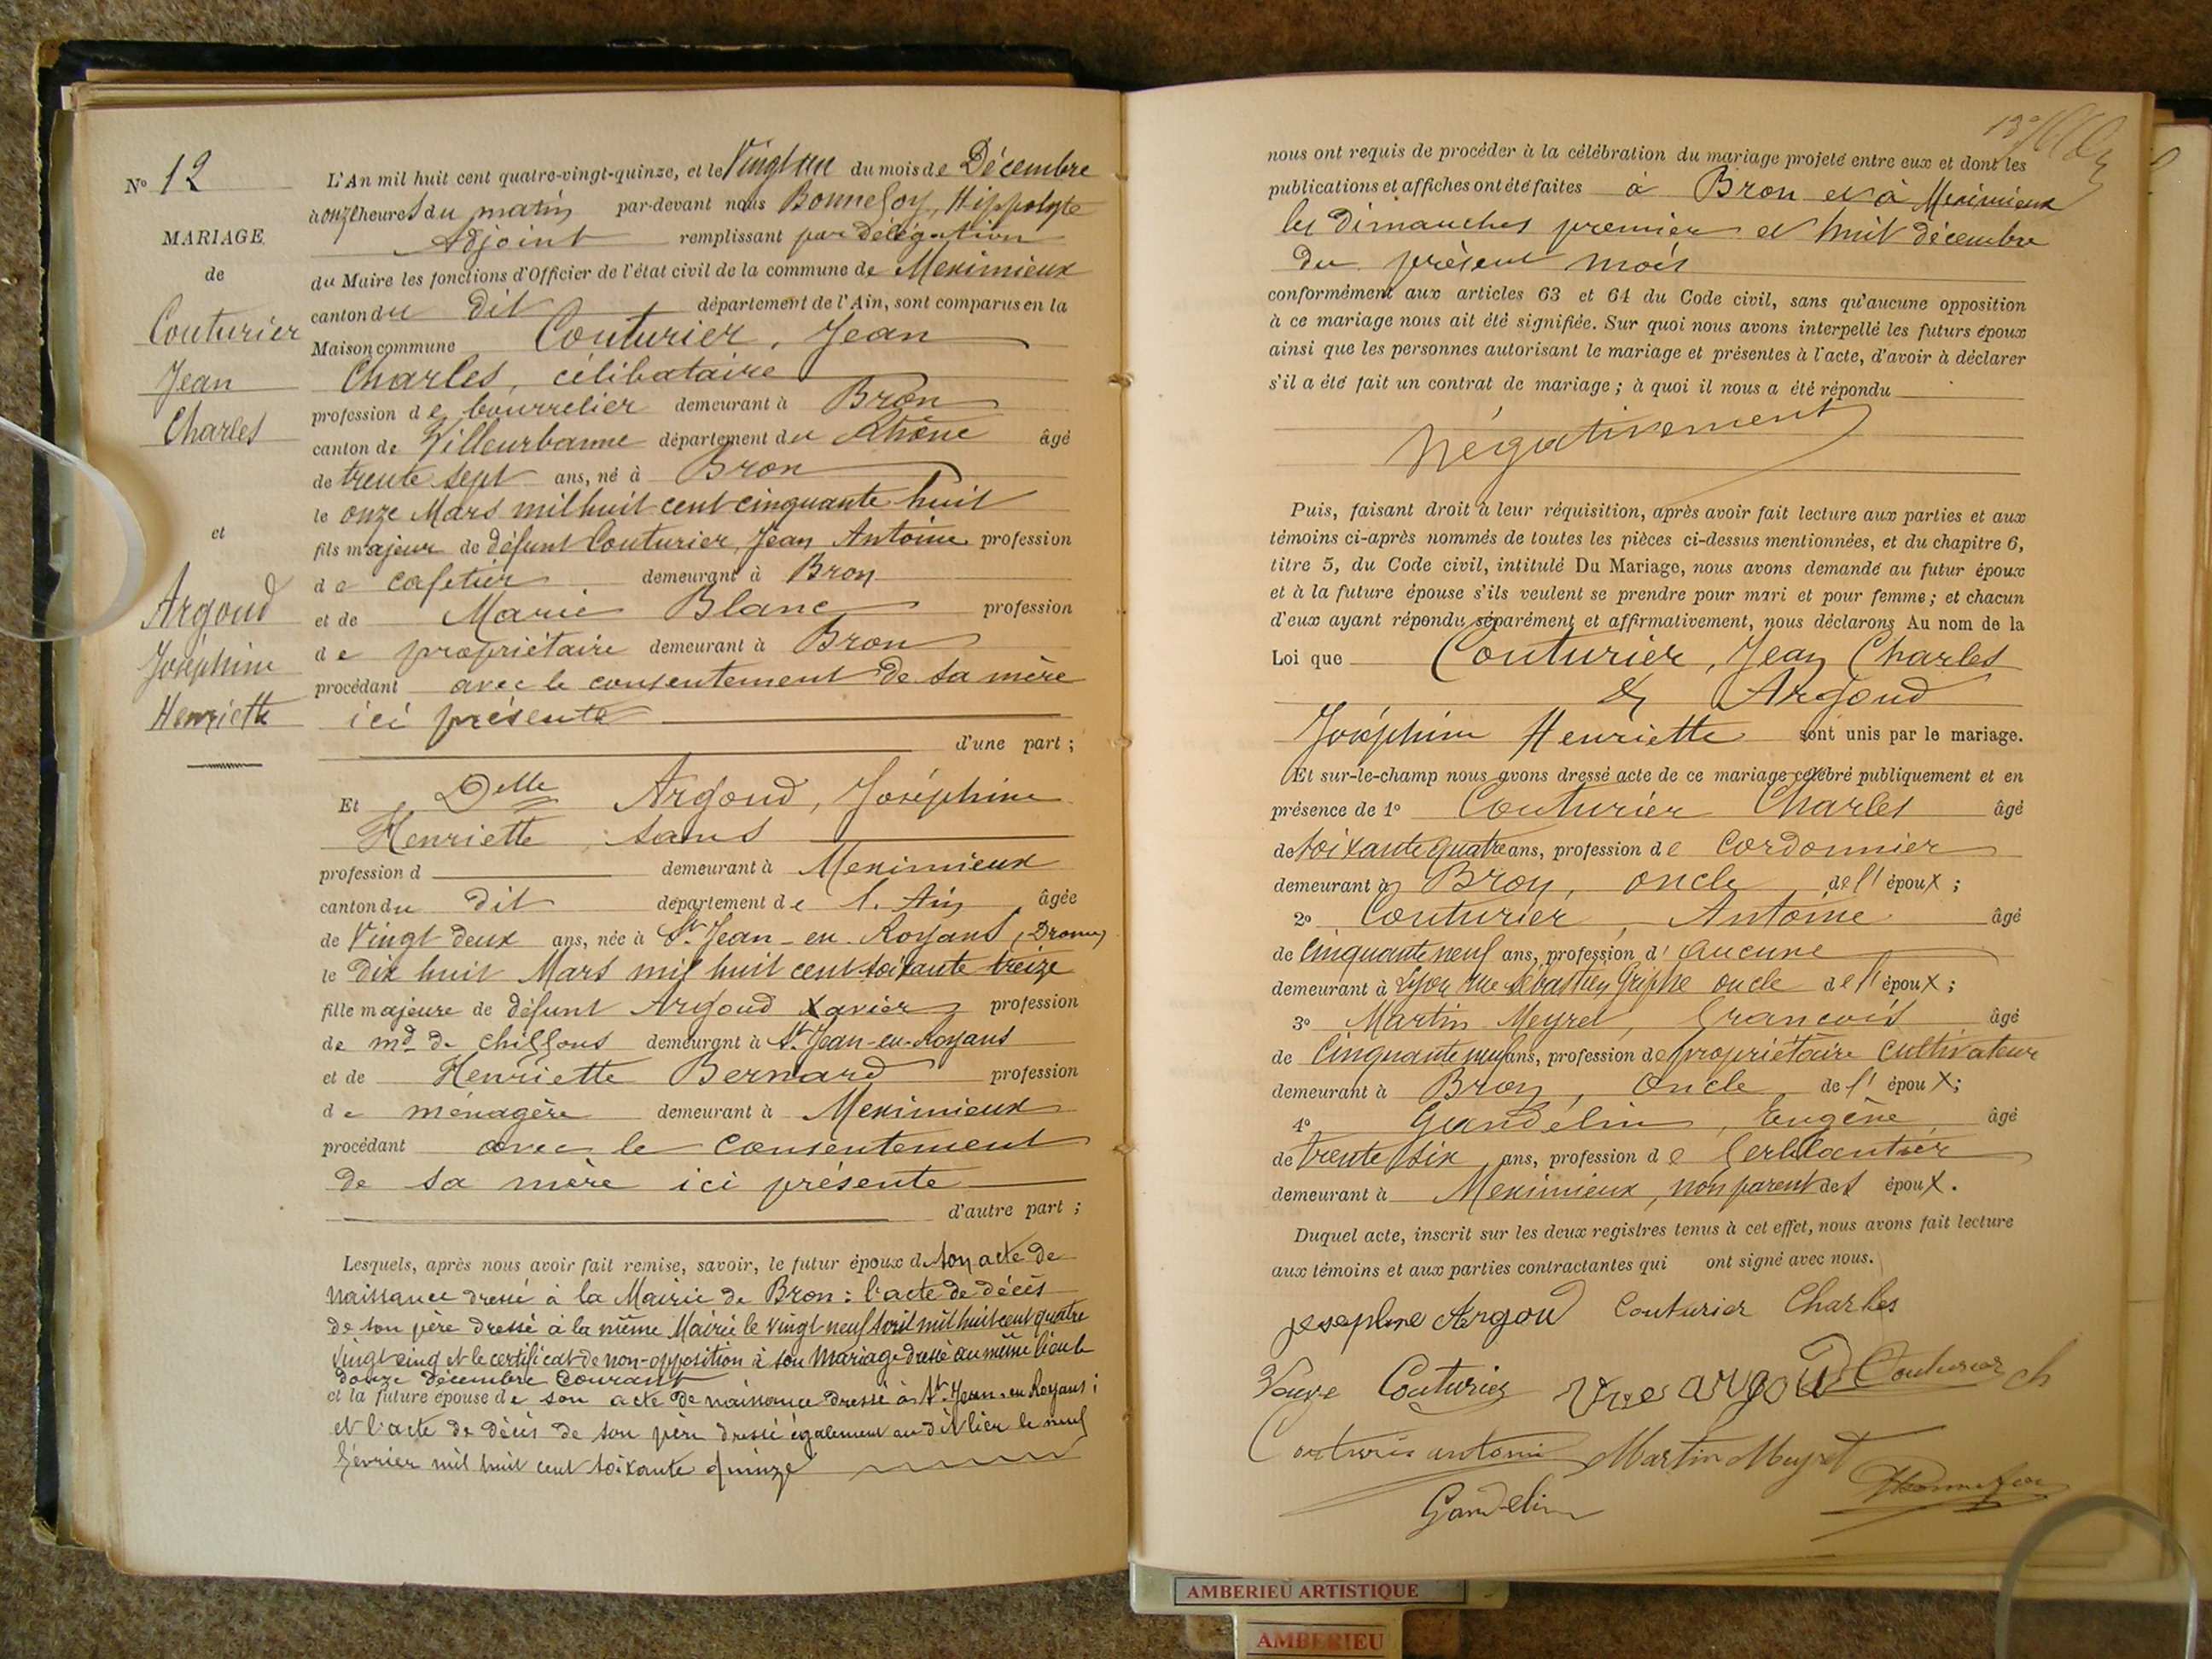 N° 12
MARIAGE
de
Couturier
Jean
Charles
et
Argoud
Joséphine
Henriette
L'An mil huit cent quatre-vingt-quinze, et le Vingt un du mois de Décembre
à onze heures du matin par-devant nous Bonnefoy, Hippolyte
Adjoint remplissant par délégation
du Maire les fonctions d'Officier de l'état civil de la commune de Meximieux
canton du dit département de l'Ain, sont comparus en la
Maison commune Couturier, Jean
Charles, célibataire
profession de bourrelier demeurant à Bron
canton de Villeurbanne département du Rhône âgé
de trente sept ans, né à Bron
le onze Mars mil huit cent cinquante huit
fils majeur de défunt Couturier, Jean Antoine profession
de cafetier demeurant à Bron
et de Marie Blanc profession
de propriétaire demeurant à Bron
procédant avec le consentement de sa mère
ici présente
d'une part ;
Et Delle Argoud, Joséphine
Henriette, sans
profession d demeurant à Meximieux
canton du dit département de l'Ain âgée
de Vingt deux ans, née à St Jean-en-Royans, (Drome)
le dix huit Mars mil huit cent soixante treize
fille majeure de défunt Argoud Xavier profession
de md de chiffons demeurant à St Jean-en-Royans
et de Henriette Bernard profession
de ménagère demeurant à Meximieux
procédant avec le consentement
de sa mère ici présente
d'autre part ;
Lesquels, après nous avoir fait remise, savoir, le futur époux de son acte de
naissance dressé à la Mairie de Bron : l'acte de décès
de son père dressé à la même Mairie le vingt-neuf avril mil huit cent quatre
vingt cinq et le certificat de non-opposition à son Mariage dressé au même lieu le
douze décembre courant
et la future épouse de son acte de naissance dressé à St Jean-en Royans ;
et l'acte de décès de son père dressé également au dit lieu le neuf
février mil huit cent soixante quinze
nous ont requis de procéder à la célébration du mariage projeté entre eux et dont les
publications et affiches ont été faites à Bron et à Meximieux
les dimanches premier et huit décembre
du présent mois
conformément aux articles 63 et 64 du Code civil, sans qu'aucune opposition
à ce mariage nous ait été signifiée. Sur quoi nous avons interpellé les futurs époux
ainsi que les personnes autorisant le mariage et présentes à l'acte, d'avoir à déclarer
s'il a été fait un contrat de mariage ; à quoi il nous a été répondu
négativement
Puis, faisant droit à leur réquisition, après avoir fait lecture aux parties et aux
témoins ci-après nommés de toutes les pièces ci-dessus mentionnées, et du chapitre 6,
titre 5, du Code civil, intitulé Du Mariage, nous avons demandé au futur époux
et à la future épouse s'ils veulent se prendre pour mari et pour femme ; et chacun
d'eux ayant répondu séparément et affirmativement, nous déclarons Au nom de la
Loi que Couturier, Jean Charles
& Argoud
Joséphine Henriette sont unis par le mariage.
Et sur-le-champ nous avons dressé acte de ce mariage célébré publiquement et en
présence de 1° Couturier Charles âgé
de soixante quatre ans, profession de Cordonnier
demeurant à Bron, oncle de l'époux ;
2° Couturier, Antoine âgé
de Cinquante neuf ans, profession d'aucune
demeurant à Lyon rue Sébastien Griphe oncle de l'époux ;
3° Martin Meyret, François âgé
de Cinquante neuf ans, profession de propriétaire cultivateur
demeurant à Bron, oncle de l'époux ;
4° Gandelin, Eugène âgé
de trente six ans, profession de ferblantier
demeurant à Meximieux, non parent des époux.
Duquel acte, inscrit sur les deux registres tenus à cet effet, nous avons fait lecture
aux témoins et aux parties contractantes qui ont signé avec nous.
josephine Argoud Couturier Charles
Veuve Couturier Vve argoud Couturier ch
Couturier antoine Martin Meyret
Gandelin
AMBERIEU ARTISTIQUE
AMBERIEU